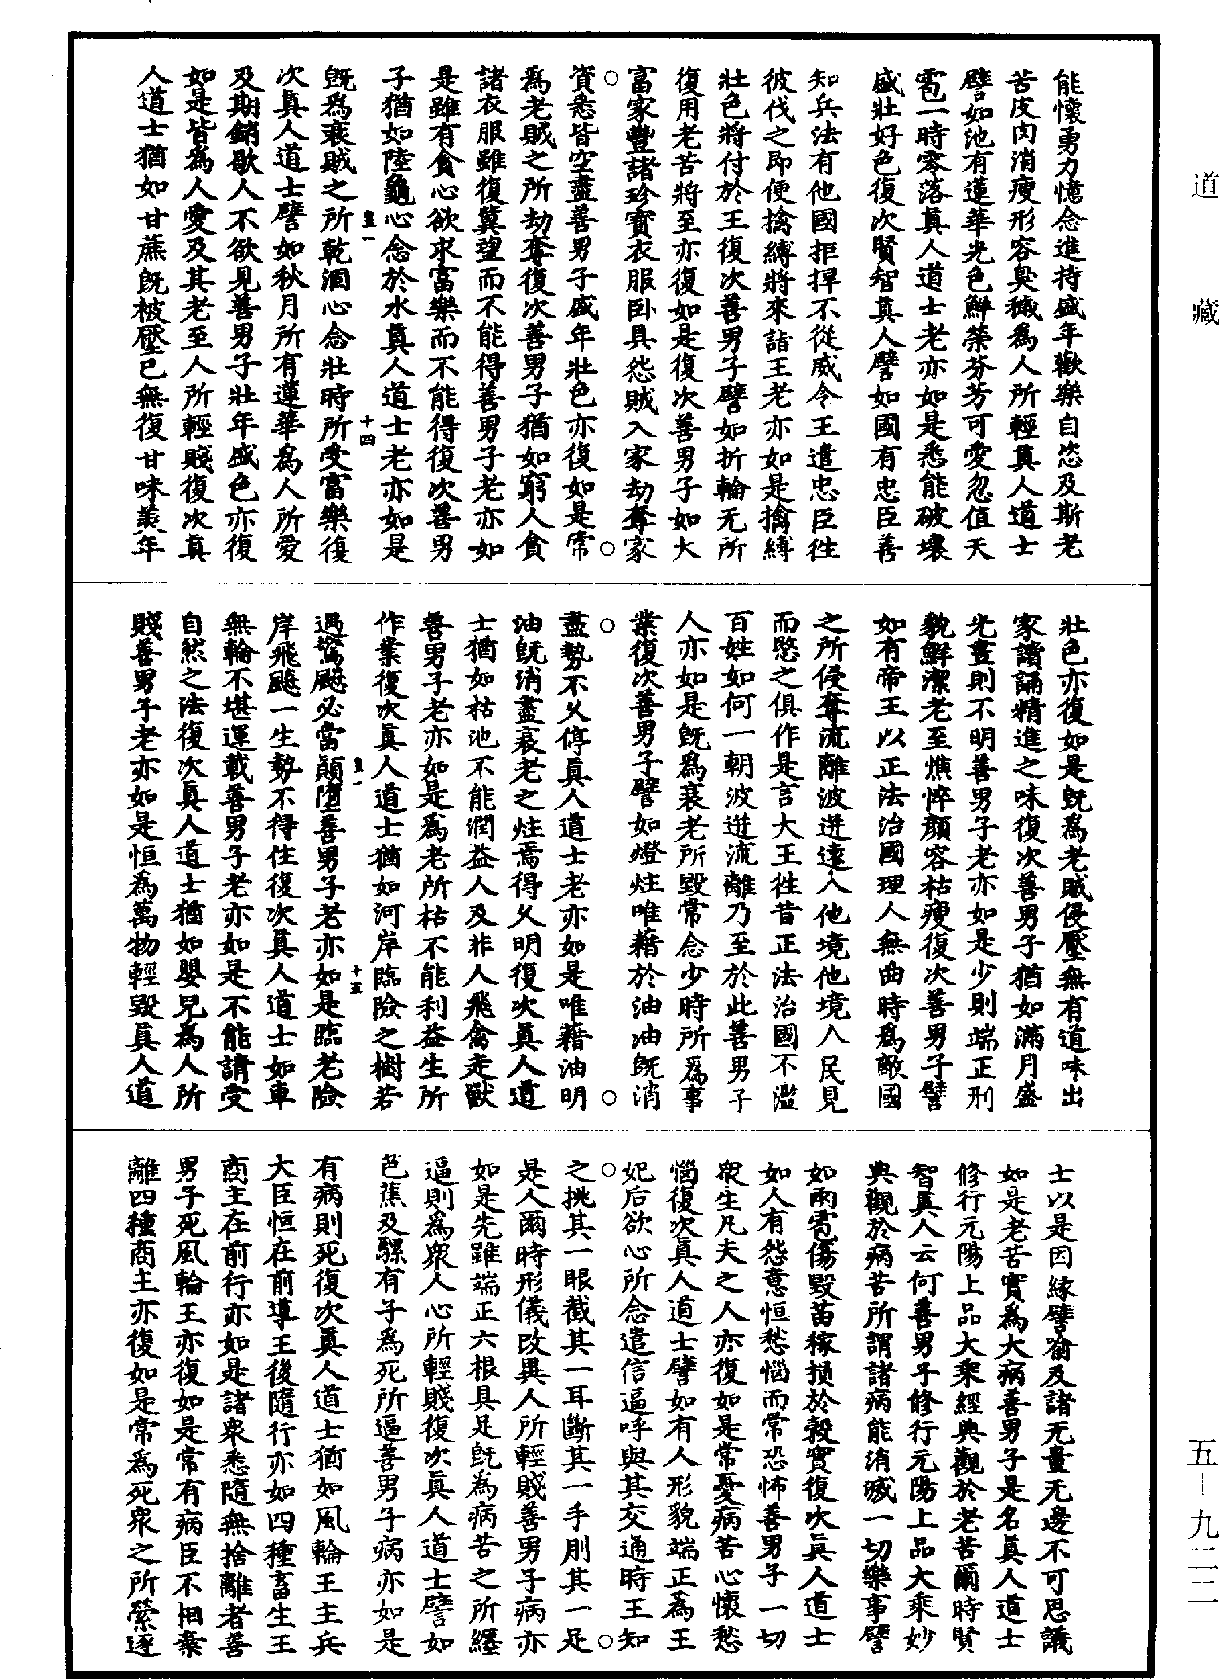 道藏
五一九二二
能懷勇力憶念進持盛年歡樂自恣及斯老
苦皮肉消瘦形容臭穢為人所輕真人道士
譬如池有蓮華光色鮮榮芬芳可愛忽值天
雹一時零落真人道士老亦如是悉能破壞
盛壯好色復次賢智真人譬如國有忠臣善
知兵法有他國拒捍不從威令王遣忠臣往
彼伐之即便擒縛將來詣王老亦如是擒縛
壯色將付於王復次善男子譬如折輪无所
復用老苦將至亦復如是復次善男子如大
富家豐諸珍寶衣服卧具怨賊入家劫奪家
資悉皆空盡善男子盛年壯色亦復如是常
為老賊之所劫奪復次善男子猶如窮人貪
諸衣服雖復冀望而不能得善男子老亦如
是雖有貪心欲求富樂而不能得復次善男
子猶如陸龜心念於水真人道士老亦如是
既為衰賊之所乾涸心念壯時所受富樂復
次真人道士譬如秋月所有蓮華為人所愛
及期銷歇人不欲見善男子壯年盛色亦復
如是皆為人愛及其老至人所輕賤復次真
人道士猶如甘蔗既被壓已無復甘味美年
十四
壯色亦復如是既為老賊侵壓無有道味出
家讀誦精進之味復次善男子猶如滿月盛
光晝則不明善男子老亦如是少則端正形
貌鮮潔老至憔悴顏容枯瘦復次善男子譬
如有帝王以正法治國理人無曲時為敵國
之所侵奪流離波迸遠入他境他境人民見
而愍之俱作是言大王往昔正法治國不濫
百姓如何一朝波迸流離乃至於此善男子
人亦如是既為衰老所毀常念少時所為事
業復次善男子譬如燈炷唯藉於油油既消
盡勢不久停真人道士老亦如是唯藉油明
油既消盡衰老之炷焉得久明復次真人道
士猶如枯池不能潤益人及非人飛禽走獸
善男子老亦如是為老所枯不能利益生所
作業復次真人道士猶如河岸臨險之樹若
遇驚飈必當顛墮善男子老亦如是臨老險
岸飛飈一生勢不得住復次真人道士如車
無輪不堪運載善男子老亦如是不能請受
自然之法復次真人道士猶如嬰兒為人所
賤善男子老亦如是恒為萬物輕毀真人道
十五
士以是因緣譬喻及諸无量无邊不可思議
如是老苦實為大病善男子是名真人道士
修行元陽上品大乘經典觀於老苦爾時賢
智真人云何善男子修行元陽上品大乘妙
典觀於病苦所謂諸病能消滅一切樂事譬
如雨雹傷毀苗稼損於穀實復次真人道士
如人有怨意恒愁惱而常恐怖善男子一切
眾生凡夫之人亦復如是常憂病苦心懷愁
惱復次真人道士譬如有人形貌端正為王
妃后欲心所念遣信逼呼與其交通時王知
之挑其一眼截其一耳斷其一手刖其一足
是人爾時形儀改異人所輕賤善男子病亦
如是先雖端正六根具足既為病苦之所纏
逼則為眾人心所輕賤復次真人道士譬如
芭蕉及騾有子為死所逼善男子病亦如是
有病則死復次真人道士猶如風輪王主兵
大臣恒在前導王後隨行亦如四種畜生王
商主在前行亦如是諸眾悉隨無捨離者善
男子死風輪王亦復如是常有病臣不相棄
離四種商主亦復如是常為死眾之所縈逐